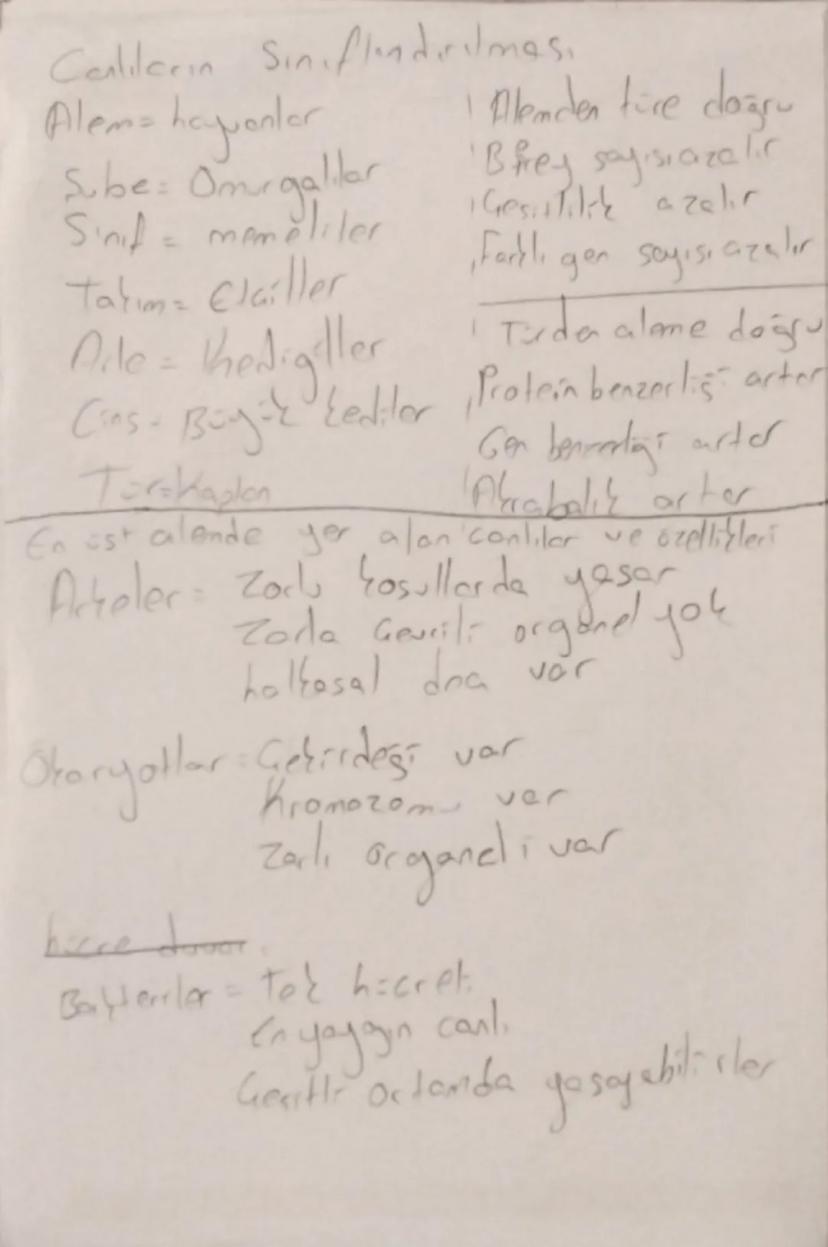 Canlıların Sınıflandırılması
Alem = hayvanlar
Şube = Omurgalılar
Sınıf = memeliler
Takım = Etçiller
Aile = Kedigiller
Cins - Büyük kediler
Tür = Kaplan
Alemden türe doğru
Birey sayısı azalır
Çeşitlilik azalır
Farklı gen sayısı azalır
Türden aleme doğru
Protein benzerliği artar
Gen benzerliği artar
Akrabalık artar
En üst alemde yer alan canlılar ve özellikleri
Arkeler = Zorlu koşullarda yaşar
Zarla çevrili organel yok
halkasal dna var
Ökaryotlar = Çekirdeği var
Kromozomu var
Zarlı organeli var
hücre duvar
Bakteriler = Tek hücreli
En yaygın canlı
Çeşitli ortamda yaşayabilirler